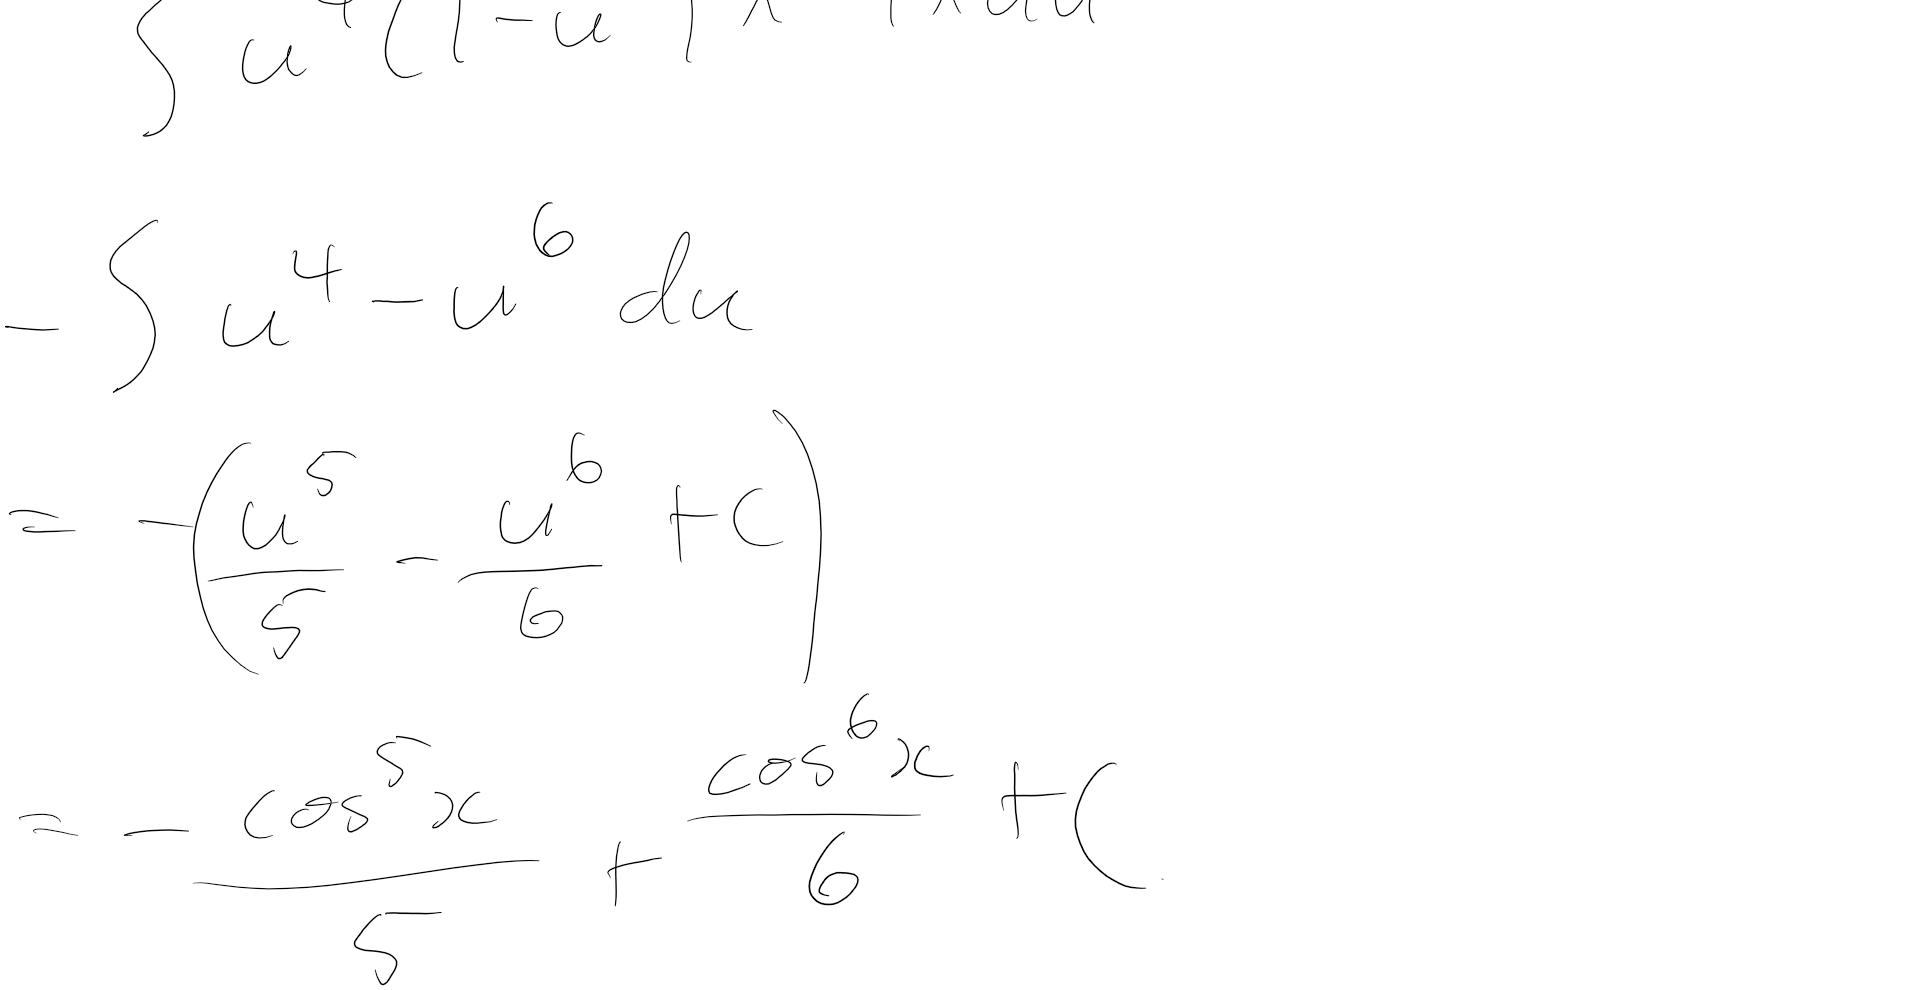 ∫ u⁴(1-u
- ∫ u⁴ - u⁶ du
= -(u⁵/5 - u⁶/6 + C)
= - cos⁵x/5 + cos⁶x/6 + C